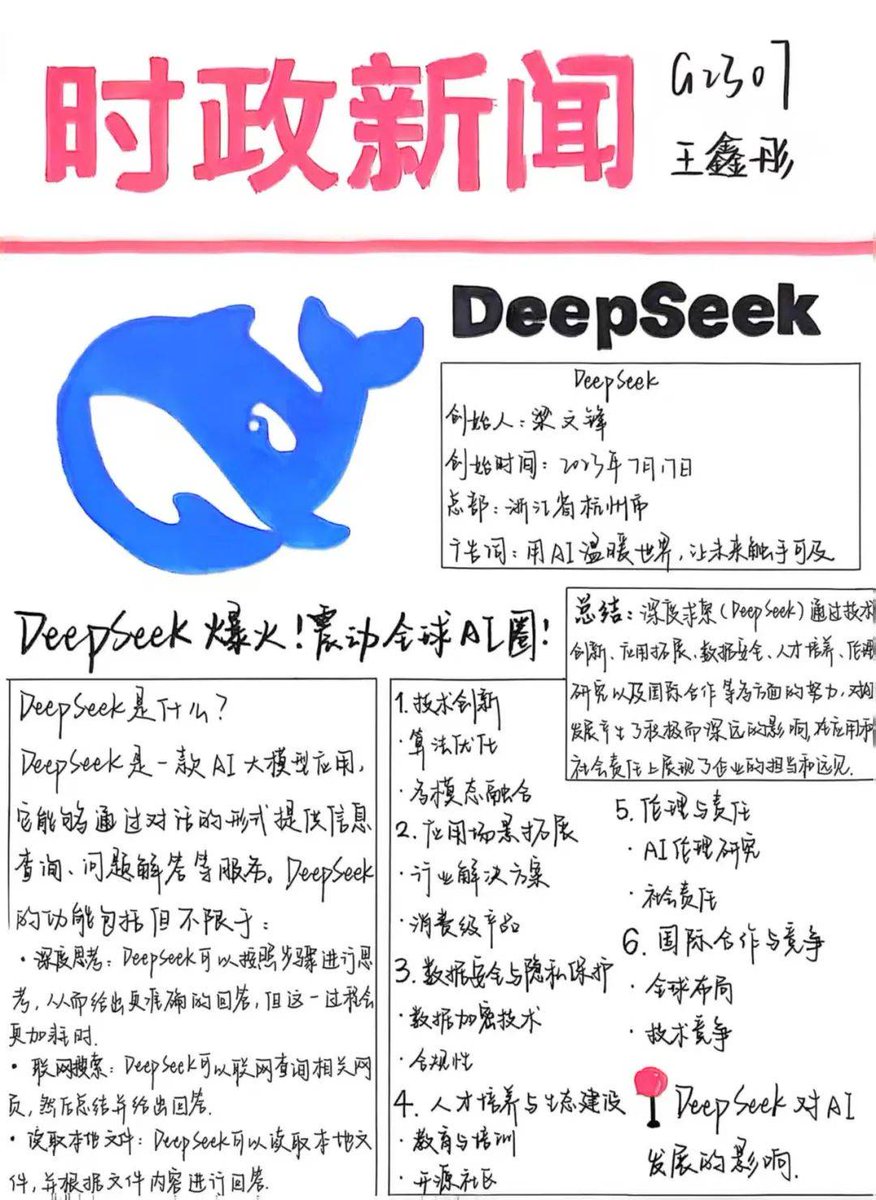 时政新闻
G2307
王鑫彤
DeepSeek
DeepSeek
创始人：梁文锋
创始时间：2023年7月17日
总部：浙江省杭州市
广告词：用AI温暖世界，让未来触手可及
DeepSeek爆火！震动全球AI圈！
总结：深度求索（DeepSeek）通过技术
创新、应用拓展、数据安全、人才培养、伦理
研究以及国际合作等多方面的努力，对AI
发展产生了积极而深远的影响，在应用和
社会责任上展现了企业的担当和远见.
DeepSeek是什么？
DeepSeek是一款AI大模型应用，
它能够通过对话的形式提供信息
查询、问题解答等服务。DeepSeek
的功能包括但不限于：
·深度思考：DeepSeek可以按照步骤进行思
考，从而给出更准确的回答，但这一过程会
更加耗时.
·联网搜索：DeepSeek可以联网查询相关网
页，然后总结并给出回答.
·读取本地文件：DeepSeek可以读取本地文
件，并根据文件内容进行回答.
1.技术创新
·算法优化
·多模态融合
2.应用场景拓展
·行业解决方案
·消费级产品
3.数据安全与隐私保护
·数据加密技术
·合规性
4.人才培养与生态建设
·教育与培训
·开源社区
5.伦理与责任
·AI伦理研究
·社会责任
6.国际合作与竞争
·全球布局
·技术竞争
DeepSeek对AI
发展的影响.